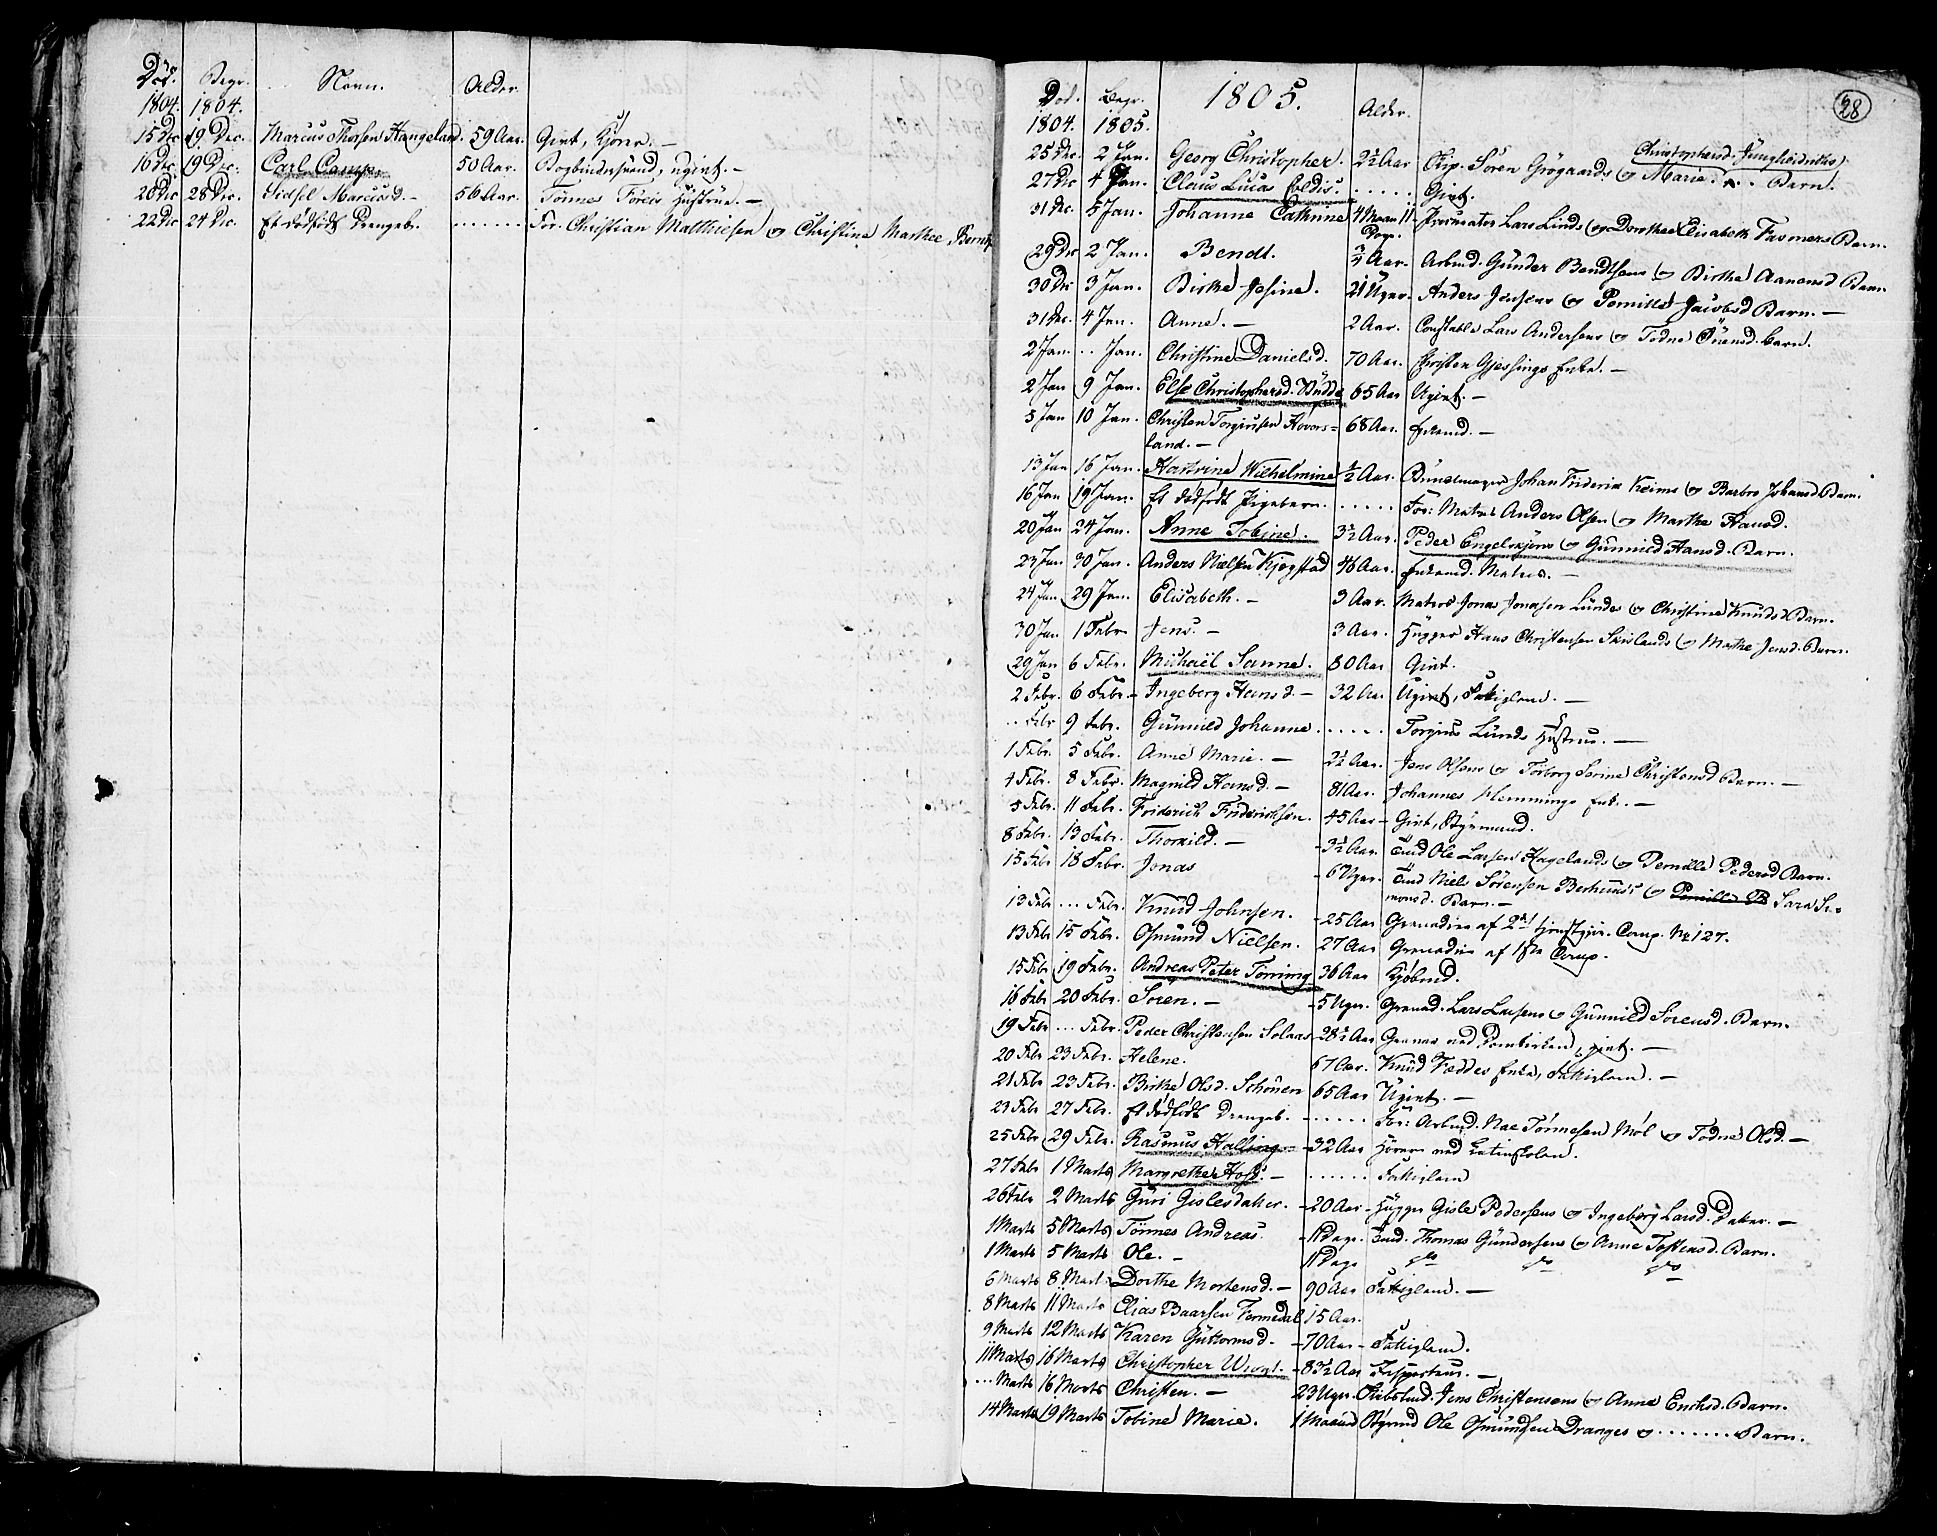 Död. Begr. Navn. Alder.
1804. 1804.
15 Dec 19 Dec. Marcus Thorsen Hangeland. 59 Aar. Givt, Kjører. —
16 Dec 19 Dec: Carl Camps. 50 Aar. Bogbindersvend, ugivt. —
20 Dec 28 Dec. Sidsel Marcusd. — 56 Aar. Tönnes Hustrue. —
22 Dec 24 Dec. Et dödfödt Drengeb. ...... For. Christian Matthiesen og Christina Marthee
28
Död. Begr. 1805. Alder.
1804. 1805.
Christophersd.
25 Dec. 2 Jan. Georg Christopher. 2½ Aar Sören Grögaards og Marie Barn.
27 Dec 4 Jan. Claus Lucas ..... Givt.
31 Dec. 5 Jan. Johanne Cathrine 4 Maan 11 Dage. Procurator Lars Lunds og Dorothea Elisabeth Fasmers Barn.
29 Dec 2 Jan. Bendt. Aar. Arbmd. Gunder Bendtsens og Birthe Aanensd Barn
30 Dec 3 Jan. Birthe Josine. 21 Uger. Anders Jensens og Pernille Jacobsd Barn. —
31 Dec. 4 Jan. Anne. — 2 Aar. Constabel Lars Andersens og Todne Barn.
2 Jan .. Jan. Christine Danielsd. 70 Aar. Christen Gjessings Enke. —
2 Jan 9 Jan. Else Christophersd. Budde 65 Aar Ugivt. —
5 Jan 10 Jan. Christen Torgiusen Hovers=
land. — 68 Aar. Enkemd. —
13 Jan 16 Jan. Kathrine Wilhelmine ½ Aar. Bundtmager Johan Friderik Keims og Barbro Johansd Barn.
16 Jan 19 Jan. Et dödfödt Pigebarn. ..... For: Matros Anders Olsen og Marthe Hansd.
20 Jan 24 Jan. Anne Tobine. 3½ Aar. Peder Engelskjöns og Gunnild Hansd. Barn.
23 Jan 30 Jan. Anders Nielsen Kjøgstad 46 Aar. Enkemd. Matros. —
24 Jan 29 Jan. Elisabeth. — 3 Aar. Matros Jonas Jonasen Lundes og Christine Knudsd Barn.
30 Jan 1 Febr. Jens. — 3 Aar. Hugger Hans Christensen og Marthe Jensd. Barn.
29 Jan 6 Febr. Michaël Sanne. 80 Aar Givt.
2 Febr. 6 Febr. Ingeborg Hansd. — 32 Aar Ugivt, Fattiglem. —
.. Febr 9 Febr. Gunnild Johanne ..... Torgius Lunds Hustrue. —
1 Febr. 5 Febr. Anne Marie. — 2½ Aar. Jens Olsens og Torborg Serine Christensd Barn. —
4 Febr. 8 Febr. Magnild Hansd. — 81 Aar. Johannes Flemmings Enk. —
5 Febr. 11 Febr. Friderich Friderichsen. 45 Aar — Givt, Styrmand.
8 Febr. 13 Febr. Thomild. — 3½ Aar. Ole Larsen Hagelands og Pernille Pedersd Barn.
15 Febr 18 Febr. Jonas 6 Uger. Niels Sörensen og Sara Si=
monsd. Barn. —
13 Febr ... Febr. Knud Johnsen. 25 Aar Grenadier af 2det Comp. No 127.
13 Febr. 15 Febr. Osmund Nielsen. 27 Aar Grenadier af 1ste Comp.
15 Febr 19 Febr. Andreas Peter Törring 36 Aar Kjöbmd.
16 Febr 20 Febr. Sören. — 5 Uger. Grenad. Lars Larsens og Gunnild Sörensd. Barn.
19 Febr ... Febr. Peder Christensen Solaas 28½ Aar ved givt. —
20 Febr 23 Febr. Helene. 67 Aar. Knud Fæddes Enke, Fattiglem. —
21 Febr 23 Febr. Birthe Olsd. Schönen 65 Aar Ugivt. —
23 Febr 27 Febr. Et dödfödt Drengeb. ...... For: Arbmd. Nae Tönnesen Möl og Todne Olsd. —
25 Febr 29 Febr. Rasmus Halling 32 Aar Hörer ved Latinskolen.
27 Febr 1 Marts Margrethe Hofs. — ...... Fattiglem
26 Febr 2 Marts Guri Gislesdatter. 20 Aar — Hugger Gisle Pedersens og Ingeborg Larsd. Datter. —
1 Marts 5 Marts Tönnes Andreas. Dage. Thomas Gundersens og Anne Tostensd. Barn.
1 Marts 5 Marts Ole. — Dage do do do
6 Marts 8 Marts Dorthe Mortensd. — 90 Aar Fattiglem. —
8 Marts 11 Marts Elias Baarsen 15 Aar.
9 Marts 12 Marts Karen Guttormsd. — 70 Aar — Fattiglem.
11 Marts 16 Marts Christopher 83½ Aar Inspecteur. —
... Marts 16 Marts Christen. — 23 Uger. Jens Christensens og Anne Erichsd. Barn.
14 Marts 19 Marts Tobine Marie. 1 Maaned Styrmd Ole Osmundsen Dranges og ....... Barn.